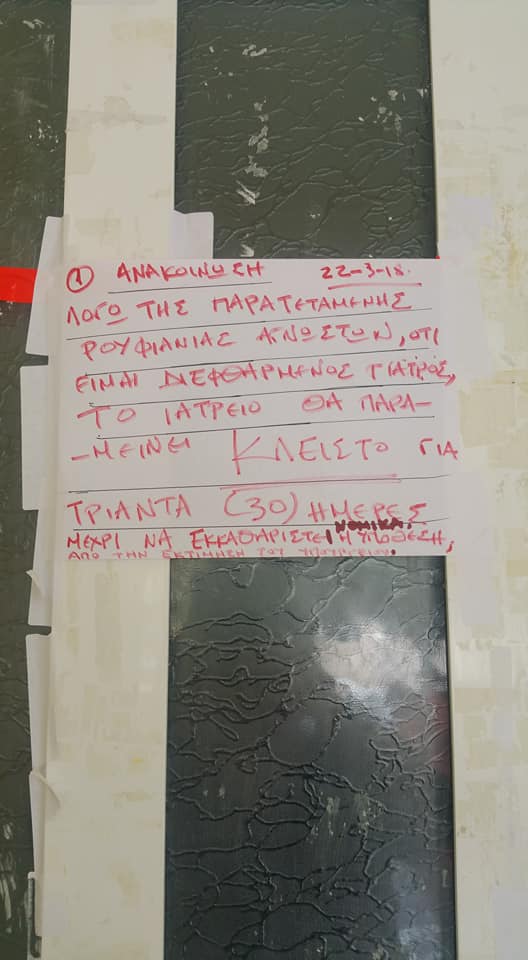 ① ΑΝΑΚΟΙΝΩΣΗ 22-3-18.
ΛΟΓΩ ΤΗΣ ΠΑΡΑΤΕΤΑΜΕΝΗΣ
ΡΟΥΦΙΑΝΙΑΣ ΑΓΝΩΣΤΩΝ, ΟΤΙ
ΕΙΜΑΙ ΔΙΕΦΘΑΡΜΕΝΟΣ ΓΙΑΤΡΟΣ,
ΤΟ ΙΑΤΡΕΙΟ ΘΑ ΠΑΡΑ-
-ΜΕΙΝΕΙ ΚΛΕΙΣΤΟ ΓΙΑ
ΤΡΙΑΝΤΑ (30) ΗΜΕΡΕΣ
ΝΟΜΙΚΑ.
ΜΕΧΡΙ ΝΑ ΕΚΚΑΘΑΡΙΣΤΕΙ Η ΥΠΟΘΕΣΗ,
ΑΠΟ ΤΗΝ ΕΚΤΙΜΗΣΗ ΤΟΥ ΥΠΟΥΡΓΕΙΟΥ.